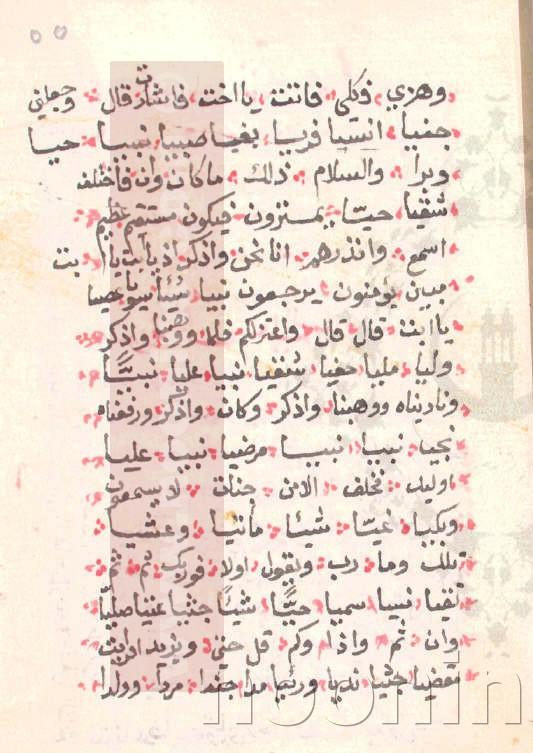 وهزي فكلي فاتت يا اخت فاشارت قال وجعلني
جنيا انسيا فريا بغيا صبيا نبيا حيا
وبرا والسلام ذلك ما كان وان فاختلف
شقيا حيا يمترون فيكون مستقيم عظيم
اسمع وانذرهم انا نحن واذكر اذ يا ابت يا ابت
مبين يؤمنون يرجعون نبيا شيئا سويا عصيا
يا ابت قال قال واعتزلكم فلما ووهبنا واذكر
وليا مليا حفيا شقيا نبيا عليا نبيا
وناديناه ووهبنا واذكر وكان واذكر ورفعناه
نجيا نبيا نبيا مرضيا نبيا عليا
اوليك فخلف الا من جنات لا يسمعون
وبكيا غيا شيئا مأتيا وعشيا
تلك وما رب ويقول اولا فوربك ثم ثم
تقيا نسيا سميا حيا شيئا جثيا عتيا صليا
وان ثم واذا وكم قل حتى ويزيد افرايت
مقضيا جثيا نديا ورئيا مدا جندا مردا وولدا